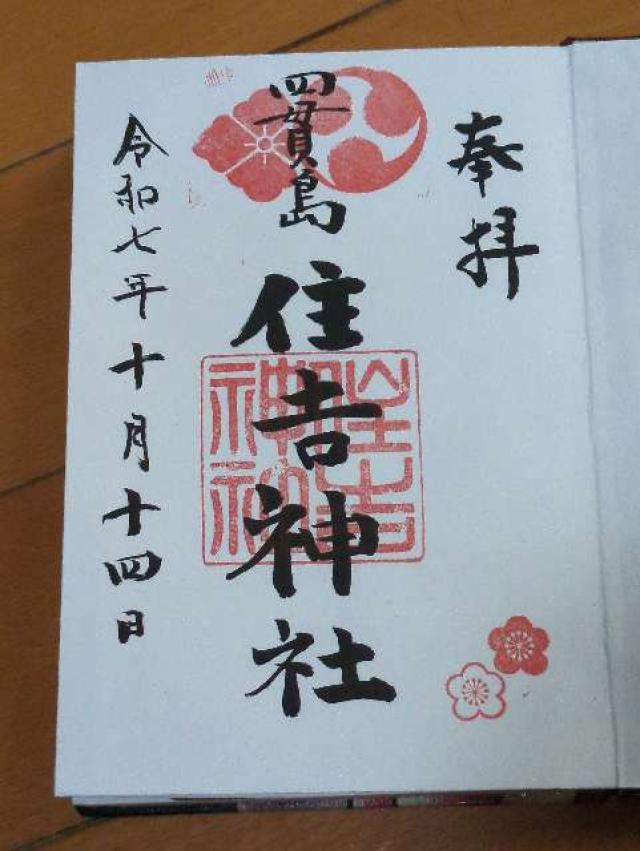 奉拝
四貫島
住吉神社
令和七年十月十四日
住吉
神社